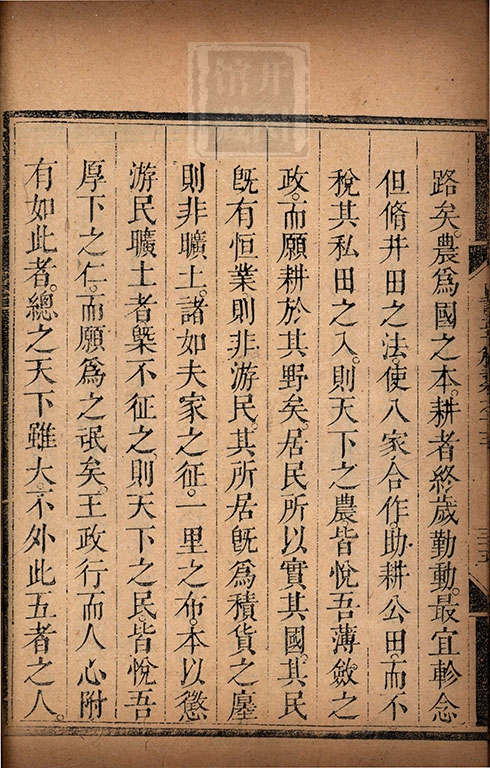 路矣。農爲國之本。耕者終歲勤動。最宜軫念
但脩井田之法。使八家合作。助耕公田。而不
稅其私田之入。則天下之農。皆悅吾薄斂之
政。而願耕於其野矣。居民所以實其國。其民
旣有恒業則非游民。其所居旣爲積貨之廛
則非曠土。諸如夫家之征。一里之布。本以懲
游民曠土者槩不征之。則天下之民。皆悅吾
厚下之仁。而願爲之氓矣。王政行而人心附
有如此者。總之天下雖大。不外此五者之人。